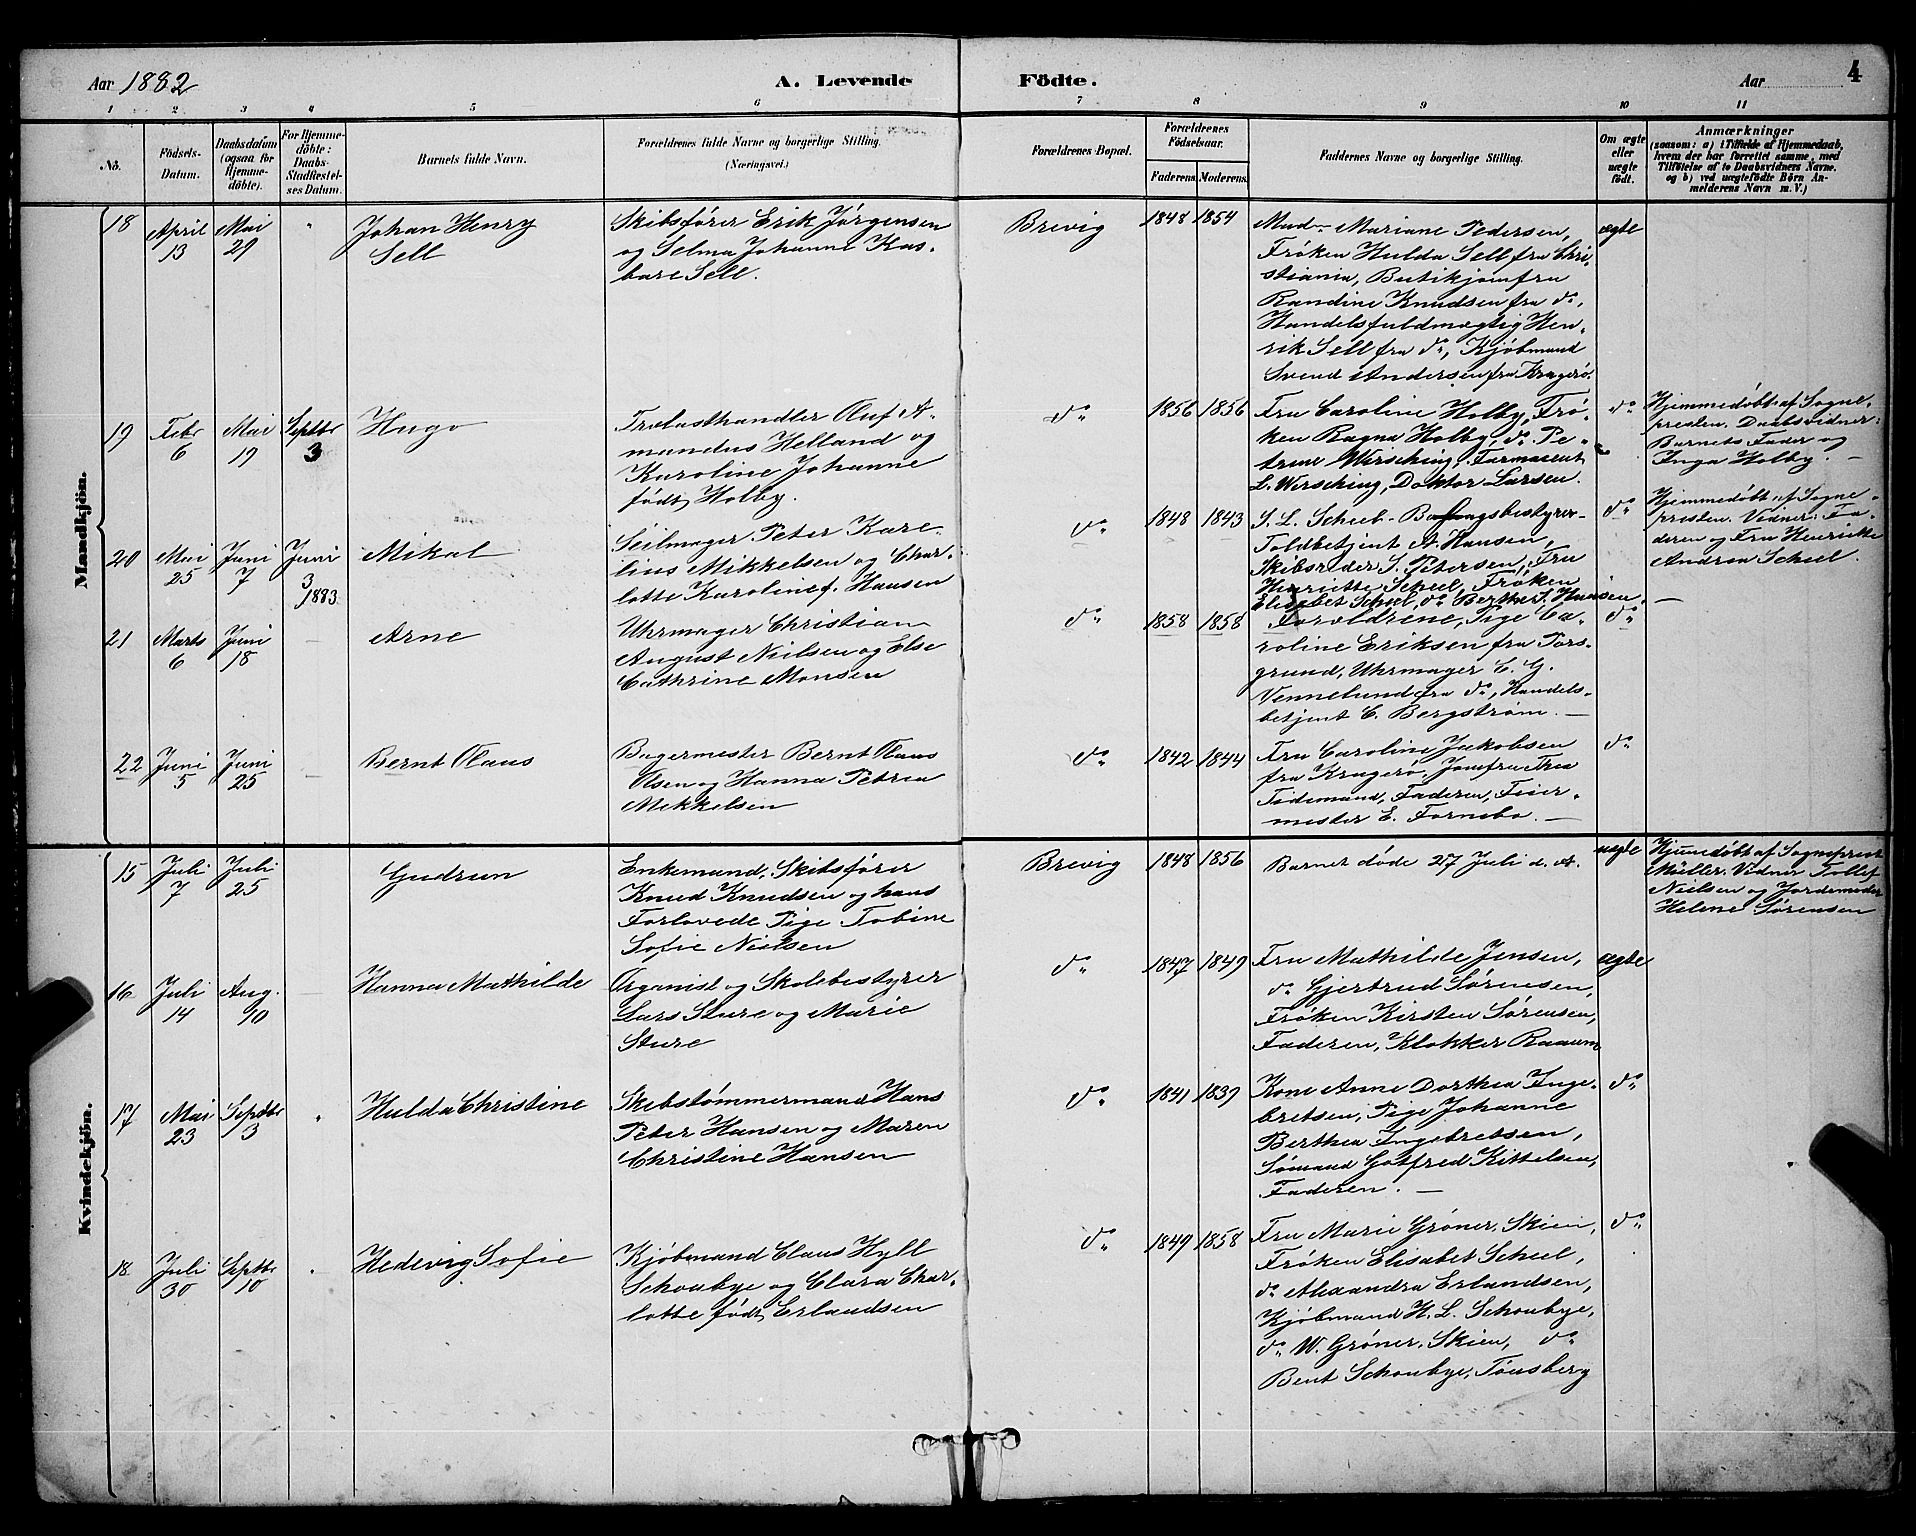 Aar 1882
A. Levende
Födte.
Aar
4
1 2 3 4 5 6 7 8 9 10 11
No.
Födsels-
Datum.
Daabsdatom
(ogsaa for
Hjemme-
döbte).
For Hjemme-
döbte:
Daabs-
Stadfæstel-
ses Datum.
Barnets fulde Navn.
Forældrenes fulde Navne og borgerlige Stilling.
(Næringsvei.)
Forældrenes Bopæl.
Forældrenes
Födselsaar.
Faderens. Moderens.
Faddernes Navne og borgerlige Stilling.
Om ægte
eller
uægte
födt.
Anmærkninger
(saasom: a) i Tilfælde af Hjemmedaab,
hvem der har forrettet samme, med
Tilföielse af to Daabsvidners Navne.
og b) ved uægtefödte Börn An-
melderens Navn m. V.)
Mandkjön.
18 April 13 Mai 29 "
Johan Henry
Sell
Skibsfører Erik Jørgensen
og Selma Johanne Kas-
bare Sell.
Brevig 1848 1854
Mad- Mariane Pedersen,
Frøken Hulda Sell fra Chri-
stiania, Butikjomfru
Randine Knudsen fra do,
Handelsfuldmægtig Hen-
rik Sell fra do, Kjøbmand
Svend Andersen fra Kragerø.
ægte
19 Febr 6 Mai 19 Septbr 3
Hugo
Trælasthandler Oluf A-
mandus Helland og
Karoline Johanne
født Holby.
do 1856 1856
Fru Caroline Holby, Frø-
ken Ragna Holby, do Pe-
trine Wirsching, Farmaceut
L. Wirsching, Doktor Larsen.
do
Hjemmedøbt af Sogne-
presten. Daabsvidner:
Barnets Fader og
Inga Holby. —
20 Mai 25 Juni 7 Juni 3 1883.
Mikal
Seilmager Peter Kare-
lius Mikkelsen og Char-
lotte Karoline f. Hansen
do 1848 1843
S. L. Scheel- Bestyrer-
Toldbetjent A. Hansen,
Skibsreder S. Petersen, Fru
Henriette Scheel, Frøken
Elisabet Scheel, do Berthe S. Hansen.
do
Hjemmedøbt af Sogne-
presten. Vidner: Fa-
deren og Fru Henrikke
Andrea Scheel.
—
21 Marts 6 Juni 18 —
Arne
Uhrmager Christian
August Nielsen og Else
Cathrine Monsen
do 1858 1858
Forældrene, Pige Ca-
roline Eriksen fra Pors-
grund, Uhrmager C. G.
Vennelund fra do, Handels-
betjent C. Bergstrøm. —
do
22 Juni 5 Juni 25 —
Bernt Olaus
Bagermester Bernt Olaus
Olsen og Hanna Petrea
Mikkelsen
do 1842 1844
Fru Caroline Jakobsen
fra Kragerø, Jomfru Thea
Tidemand, Faderen, Feier-
mester E. Fornebo. —
do
Kvindekjön.
15 Juli 7 Juli 25
Gudrun
Enkemand, Skibsfører
Knud Knudsen og hans
Forlovede Pige Tobine
Sofie Nielsen
Brevig 1848 1856
Barnet døde 27 Juli d. A.
uægte
Hjemedøbt af Sognprest
Müller. Vidner Tollef
Nielsen og Jordemoder
Helene Sørensen
16 Juli 14 Aug. 10 —
Hanna Mathilde
Organist og Skolebestyrer
Lars Sture og Marie
Sture
do 1847 1849
Fru Mathilde Jensen,
do Gjertrud Sørensen,
Frøken Kirsten Sørensen,
Faderen, Klokker Raaum
ægte
17 Mai 23 Septbr 3 "
Hulda Christine
Skibstømmermand Hans
Peter Hansen og Maren
Christine Hansen
do 1841 1839
Kone Anne Dorthea Inge-
bretsen, Pige Johanne
Berthea Ingebretsen,
Sømand Gotfred Kittelsen,
Faderen. —
do
18 Juli 30 Septbr 10 "
Hedevig Sofie
Kjøbmand Claus Hyll
Schoubye og Clara Char-
lotte født Erlandsen
do 1849 1858
Fru Marie Grøner, Skien,
Frøken Elisabet Scheel,
do Alexandra Erlandsen,
Kjøbmand H. L. Schoubye,
do W. Grøner, Skien, do
Bent Schoubye, Tønsberg
do